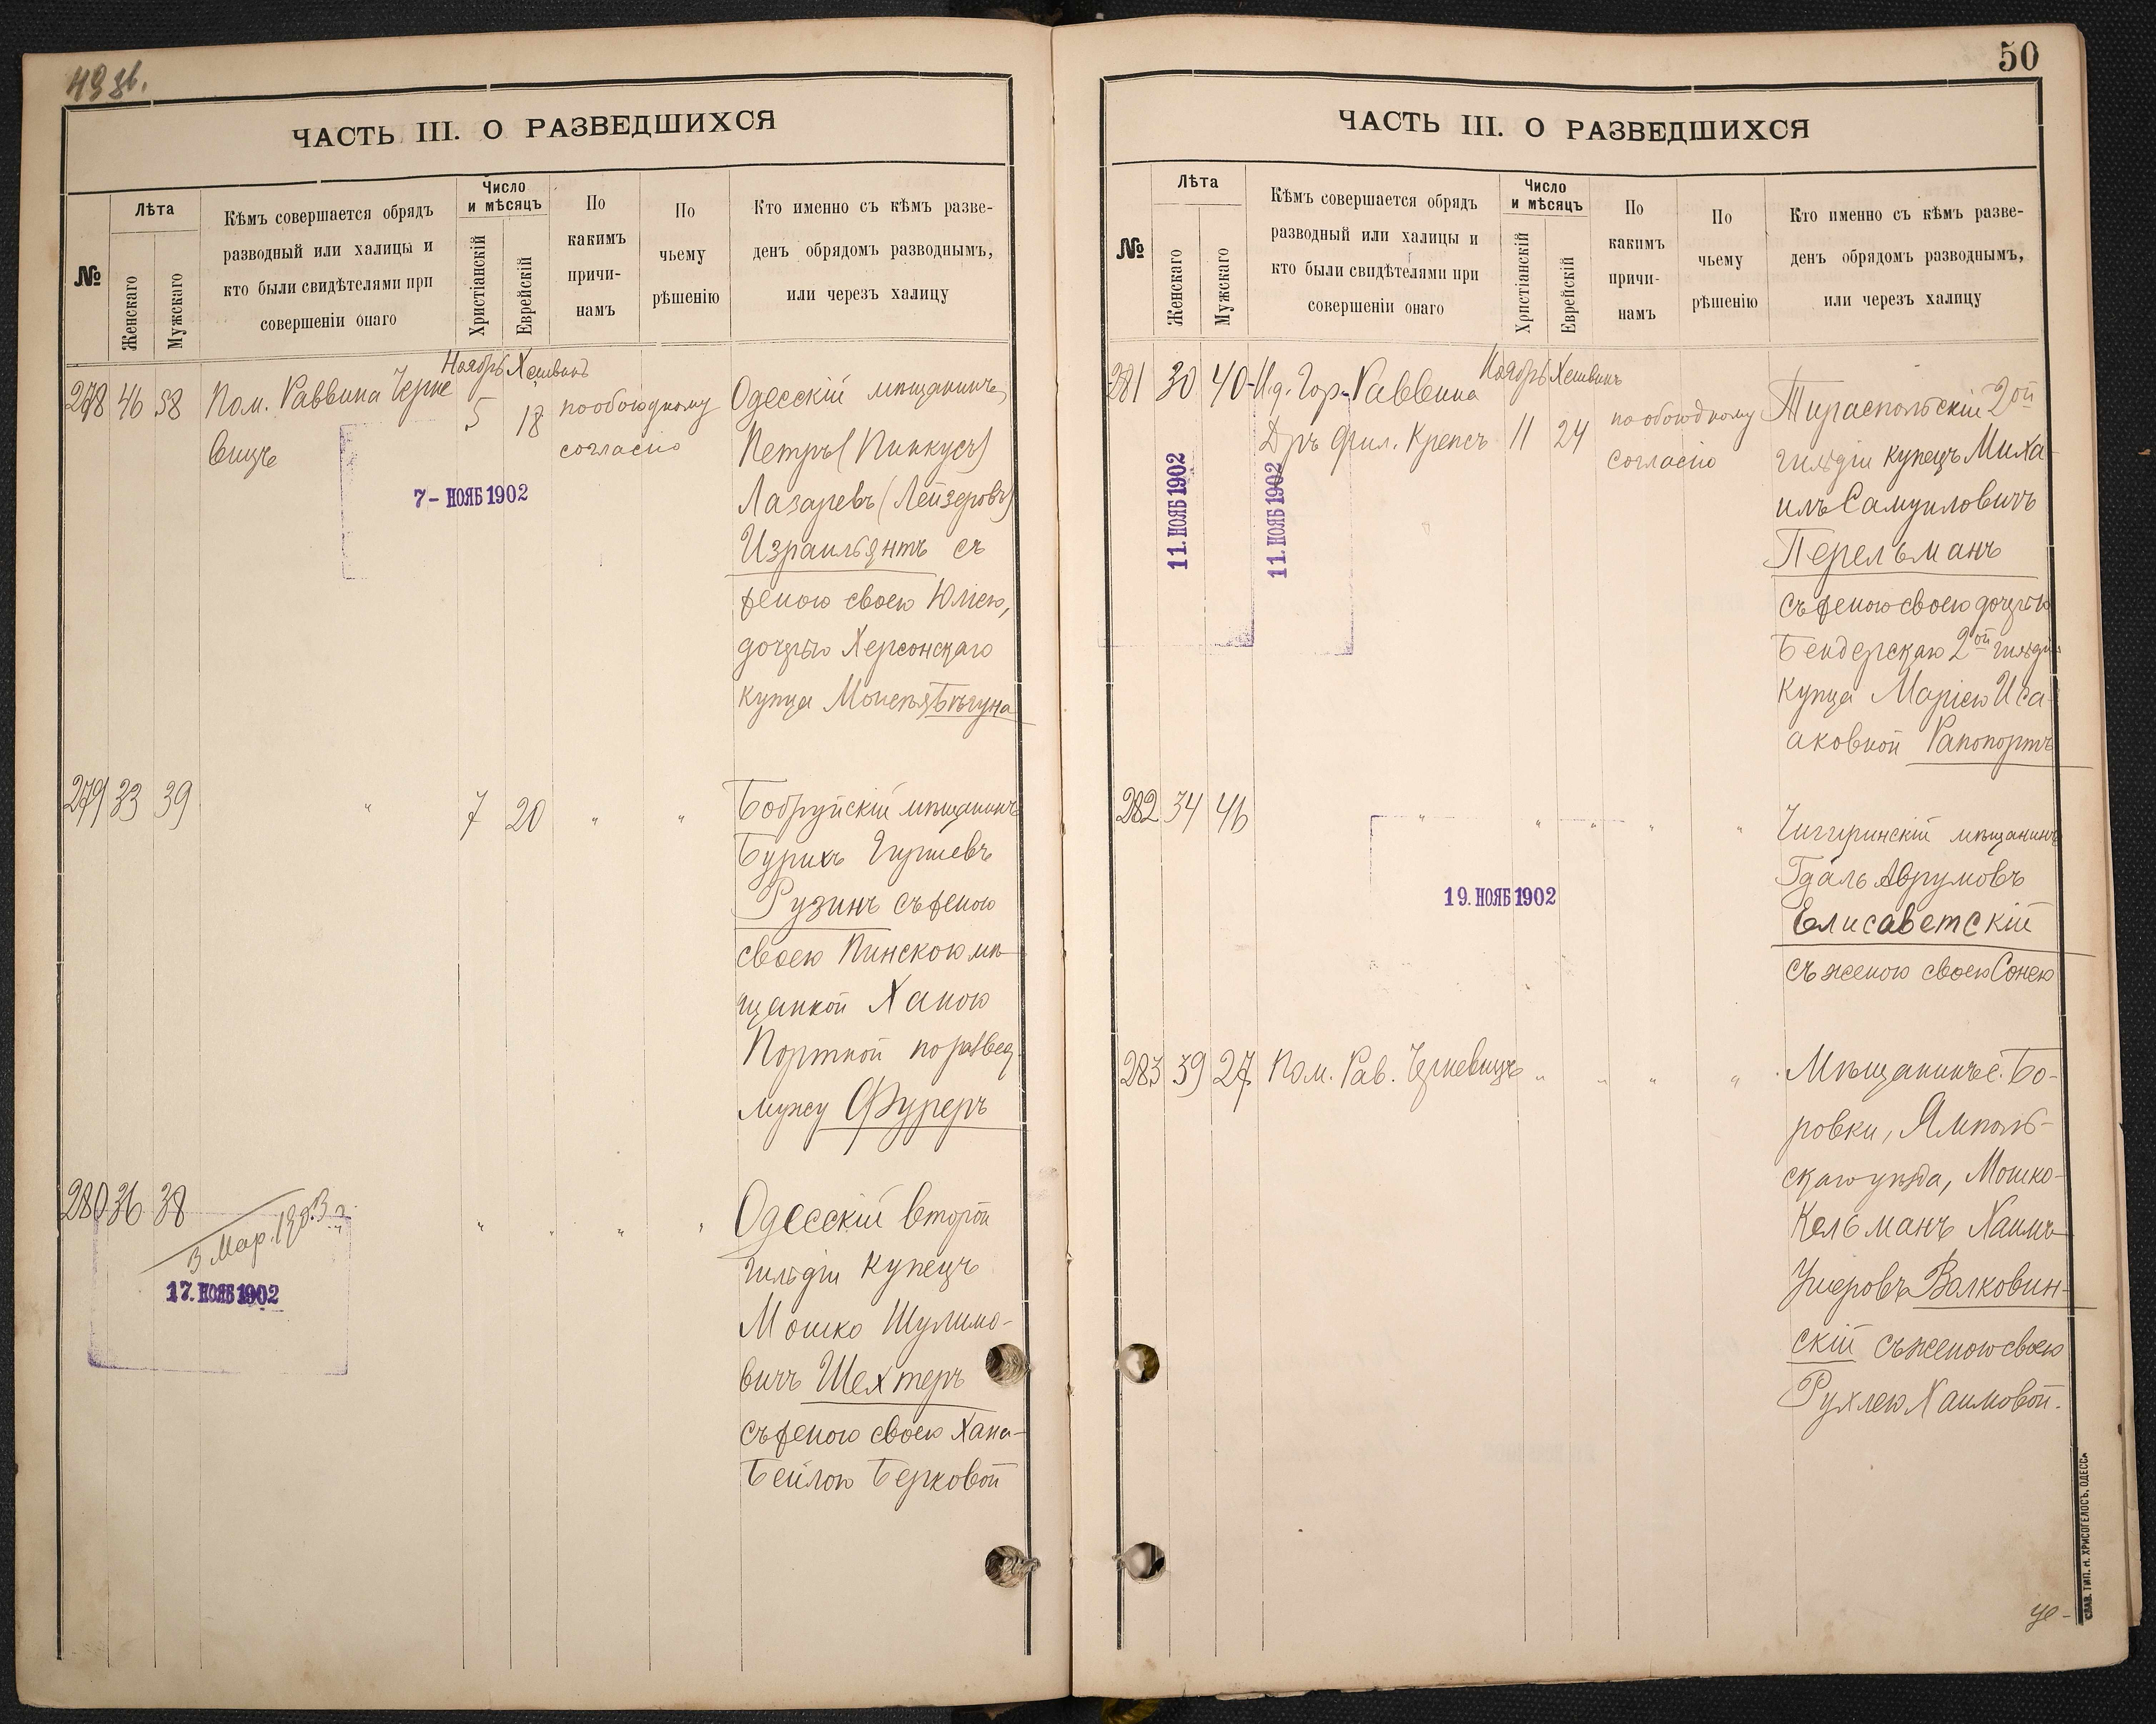 ЧАСТЬ III. О РАЗВЕДШИХСЯ
№
Лѣта
Женскаго
Мужскаго
Кѣмъ совершается обрядъ
разводный или халицы и
кто были свидѣтелями при
совершеніи онаго
Число
и мѣсяцъ
Христіанскій
Еврейскій
По
какимъ
причи-
намъ
По
чьему
рѣшенію
Кто именно съ кѣмъ разве-
денъ обрядомъ разводнымъ,
или черезъ халицу
Ноябрь Хешванъ
278 46 58 Пом. Раввина Черке
вицъ
5 18
по обоюдному
согласію
7- НОЯБ 1902
Одесскій мѣщанинъ
Петръ (Пинкусъ)
Лазаревъ (Лейзеровъ)
Израильянтъ съ
женою своею Юліею,
дочерью Херсонскаго
купца Моисея Бѣгуна
279 33 39 " 7 20 " "
Бобруйскій мѣщанинъ
Бурихъ Гиршевъ
Рузинъ съ женою
своею Пинскою мѣ-
щанкой Ханою
Портной по развед.
мужу Фуреръ
280 36 38 " " " "
3 Мар. 1903 г.
17. НОЯБ 1902
Одесскій второй
гильдіи купецъ
Мошко Шулимо-
вичъ Шехтеръ
съ женою своею Хана-
Бейлою Берковой
50
ЧАСТЬ III. О РАЗВЕДШИХСЯ
№
Лѣта
Женскаго
Мужскаго
Кѣмъ совершается обрядъ
разводный или халицы и
кто были свидѣтелями при
совершеніи онаго
Число
и мѣсяцъ
Христіанскій
Еврейскій
По
какимъ
причи-
намъ
По
чьему
рѣшенію
Кто именно съ кѣмъ разве-
денъ обрядомъ разводнымъ,
или черезъ халицу
Ноябрь Хешванъ
281 30 40 И.д. Гор. Раввина
Дръ Фил. Крепсъ
11 24
по обоюдному
согласію
11. НОЯБ 1902
11. НОЯБ 1902
Тираспольскій 2ой
гильдіи купецъ Миха-
илъ Самуиловичъ
Перельманъ
съ женою своею дочерью
Бендерскаго 2ой гильдіи
купца Маріею Иса-
аковной Рапопортъ
282 34 46 " " " " "
19. НОЯБ 1902
Чигиринскій мѣщанинъ
Гдаль Аврумовъ
Елисаветскій
съ женою своею Сонею
283 39 27 Пом. Рав. Черкевицъ " " " "
Мѣщанинъ с. Бо-
ровки, Ямполь-
скаго уѣзда, Мошко-
Кельманъ Хаимъ
Ушеровъ Волковин-
скій съ женою своею
Рухлею Хаимовой.
СЛАВ. ТИП. Н. ХРИСОГЕЛОСЪ, ОДЕССА